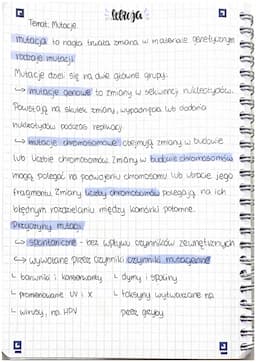 Lekcja
Temat: Mutacje.
mutacja to nagła trwała zmiana w materiale genetycznym
rodzaje mutacji
Mutacje dzieli się na dwie główne grupy:
↳ mutacje genowe to zmiany w sekwencji nukleotydów.
Powstają na skutek zmiany, wypadnięcia lub dodania
nukleotydów podczas replikacji
↳ mutacje chromosomowe obejmują zmiany w budowie
lub liczbie chromosomów. Zmiany w budowie chromosomów
mogą polegać na podwojeniu chromosomu lub utracie jego
fragmentu. Zmiany liczby chromosomów polegają na ich
błędnym rozdzielaniu między komórki potomne.
Przyczyny mutacji
↳ spontaniczne - bez wpływu czynników zewnętrznych
↳ wywołane przez czynniki czynniki mutagenne
└ barwniki i konserwanty └ dymy i spaliny
└ promieniowanie UV i X └ toksyny wytwarzane na
└ wirusy, np. HPV przez grzyby